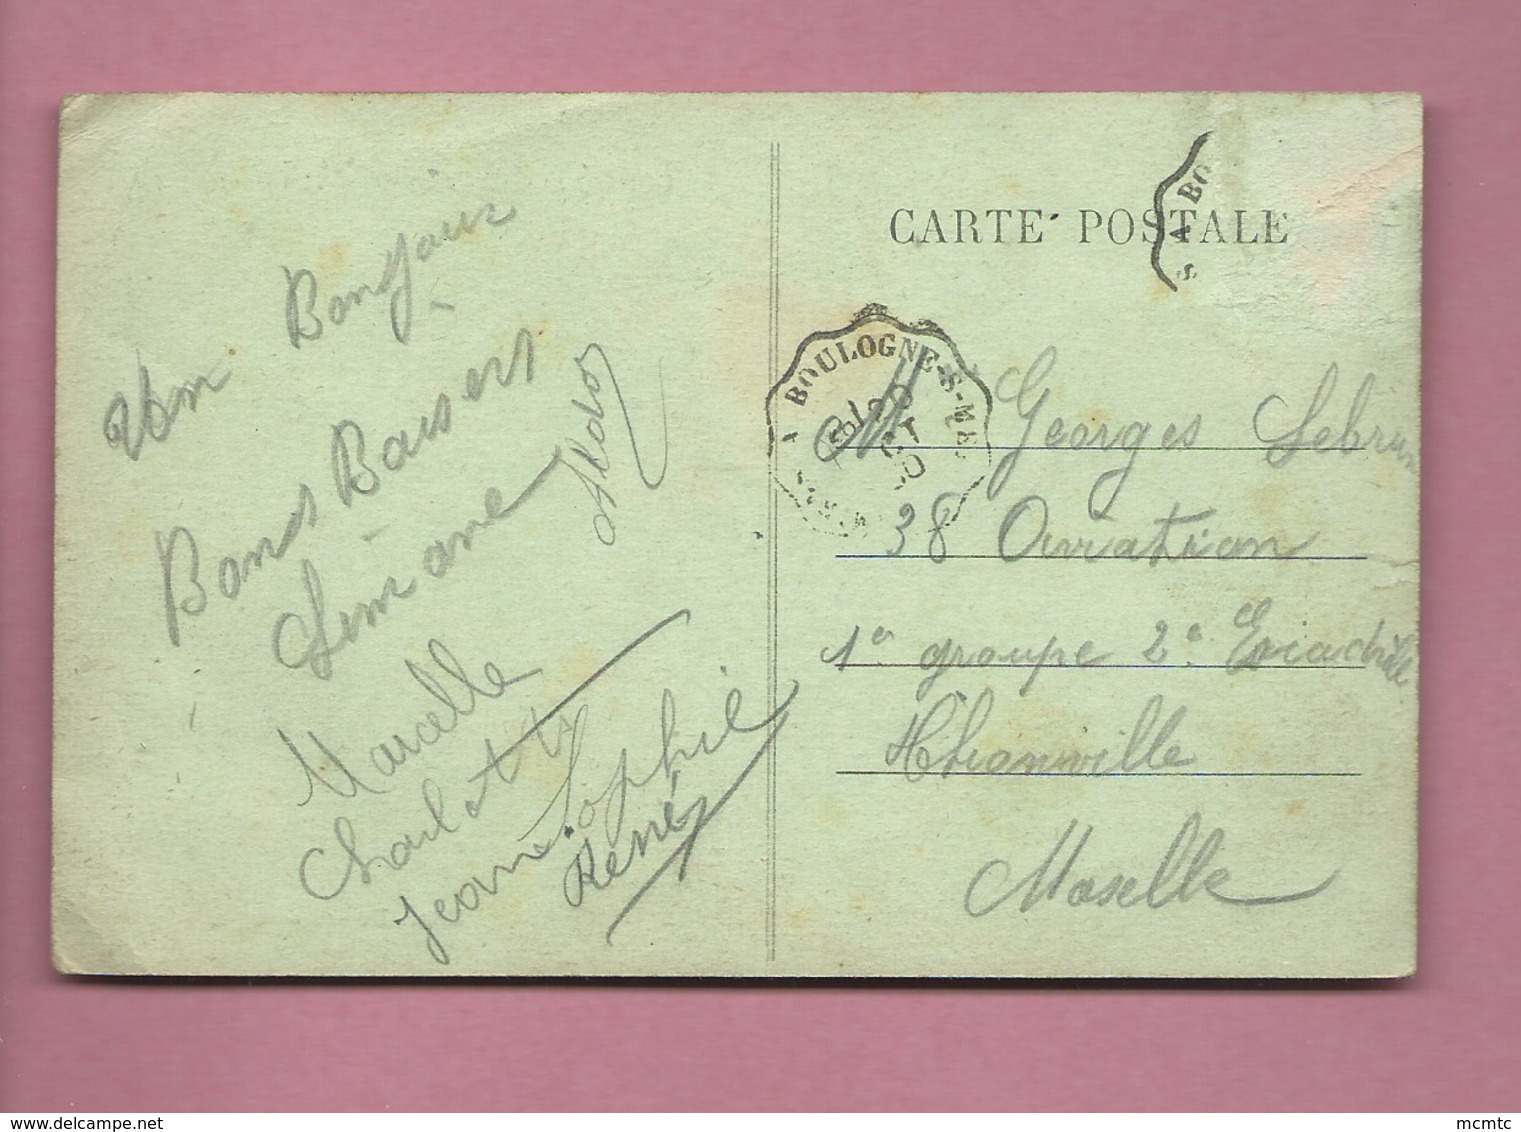 Un Bonjour
Bons Baisers
Simone
Marcelle
Charlotte
Jeanne Sophie
René
CARTE POSTALE
S A BO
A BOULOGNE-S-M
M Georges Lebrun
38 Aviation
1er groupe 2e
Thionville
Moselle
www.delcampe.net
mcmtc